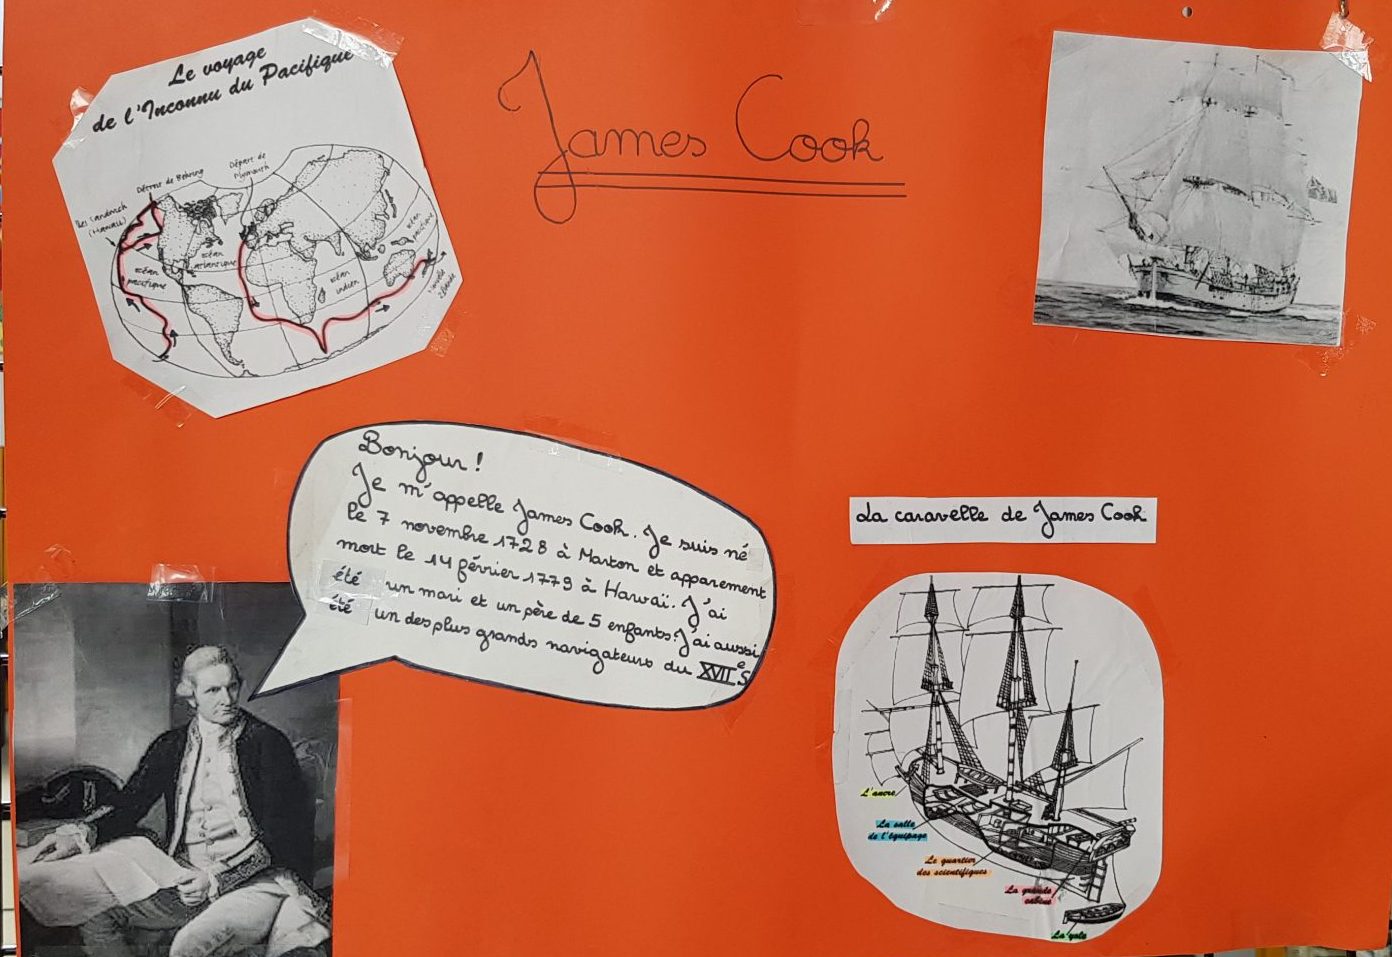 Le voyage
de l'Inconnu du Pacifique
Détroit de Behring
Départ de
Plymouth
Iles Sandwich
(Hawaii)
océan
pacifique
océan
atlantique
océan
indien
océan
James Cook
Bonjour !
Je m'appelle James Cook. Je suis né
le 7 novembre 1728 à Marton et apparement
mort le 14 février 1779 à Hawaï. J'ai
été un mari et un père de 5 enfants. J'ai aussi
été un des plus grands navigateurs du XVIIe S
La caravelle de James Cook
L'ancre
La salle
de l'équipage
Le quartier
des scientifiques
La grande
cabine
La yole